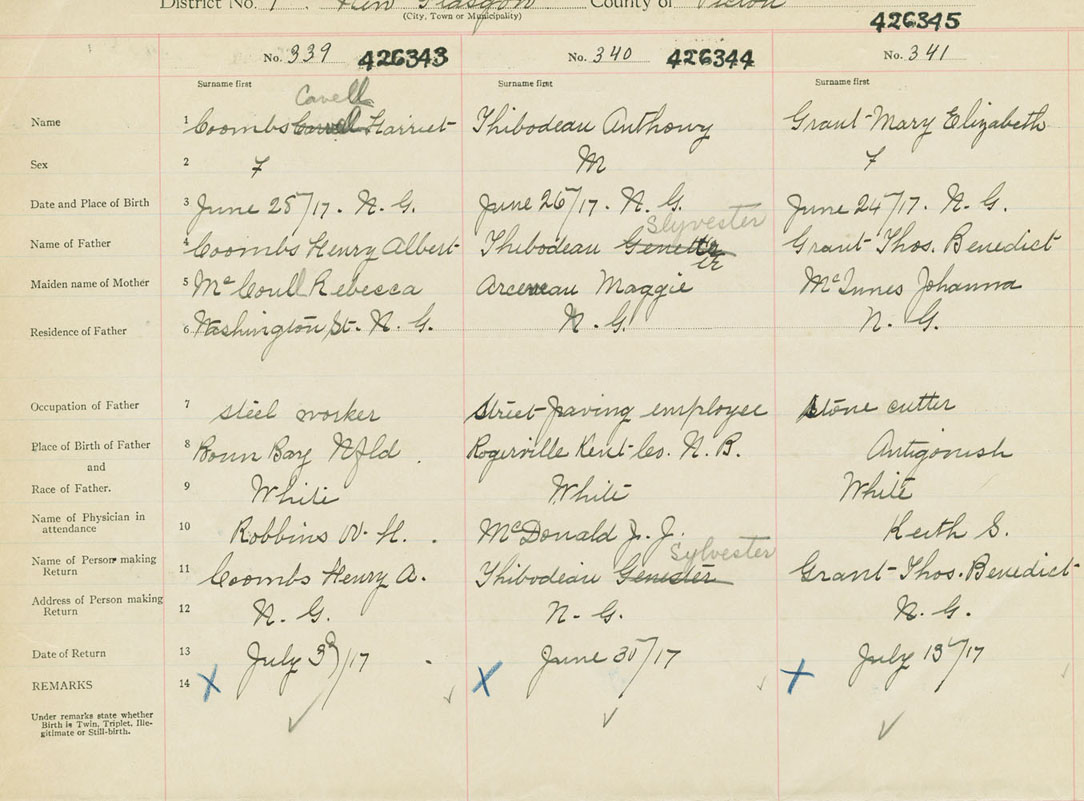 District No. 1. New Glasgow County of Pictou
(City, Town or Municipality)
426345
No. 339 426343 No. 340 426344 No. 341
Surname first Surname first Surname first
Cavell
Name 1 Coombs Harriet Thibodeau Anthony Grant Mary Elizabeth
Sex 2 F M F
Date and Place of Birth 3 June 25/17. N. G. June 26/17. N. G. June 24/17. N. G.
Slyvester
Name of Father 4 Coombs Henry Albert Thibodeau Grant Thos. Benedict
Maiden name of Mother 5 McCoull Rebecca Arceneau Maggie McInnes Johanna
Residence of Father 6 Washington St. N. G. N. G. N. G.
Occupation of Father 7 steel worker Street paving employee Stone cutter
Place of Birth of Father 8 Bonn Bay Nfld. Rogerville Kent Co. N. B. Antigonish
and
Race of Father. 9 White White White
Name of Physician in attendance 10 Robbins W. H. McDonald J. J. Keith S.
Sylvester
Name of Person making Return 11 Coombs Henry A. Thibodeau Genester Grant Thos. Benedict
Address of Person making Return 12 N. G. N. G. N. G.
Date of Return 13 July /17 June 30/17 July 13/17
REMARKS 14 X X X
Under remarks state whether
Birth is Twin, Triplet, Ille-
gitimate or Still-birth.